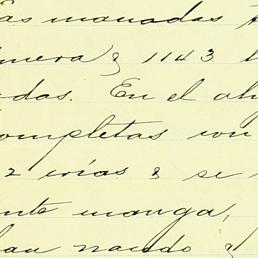 as manadas
mera y 1143
das. En el
completas con
2 crías y se
nte manga,
han nacido y